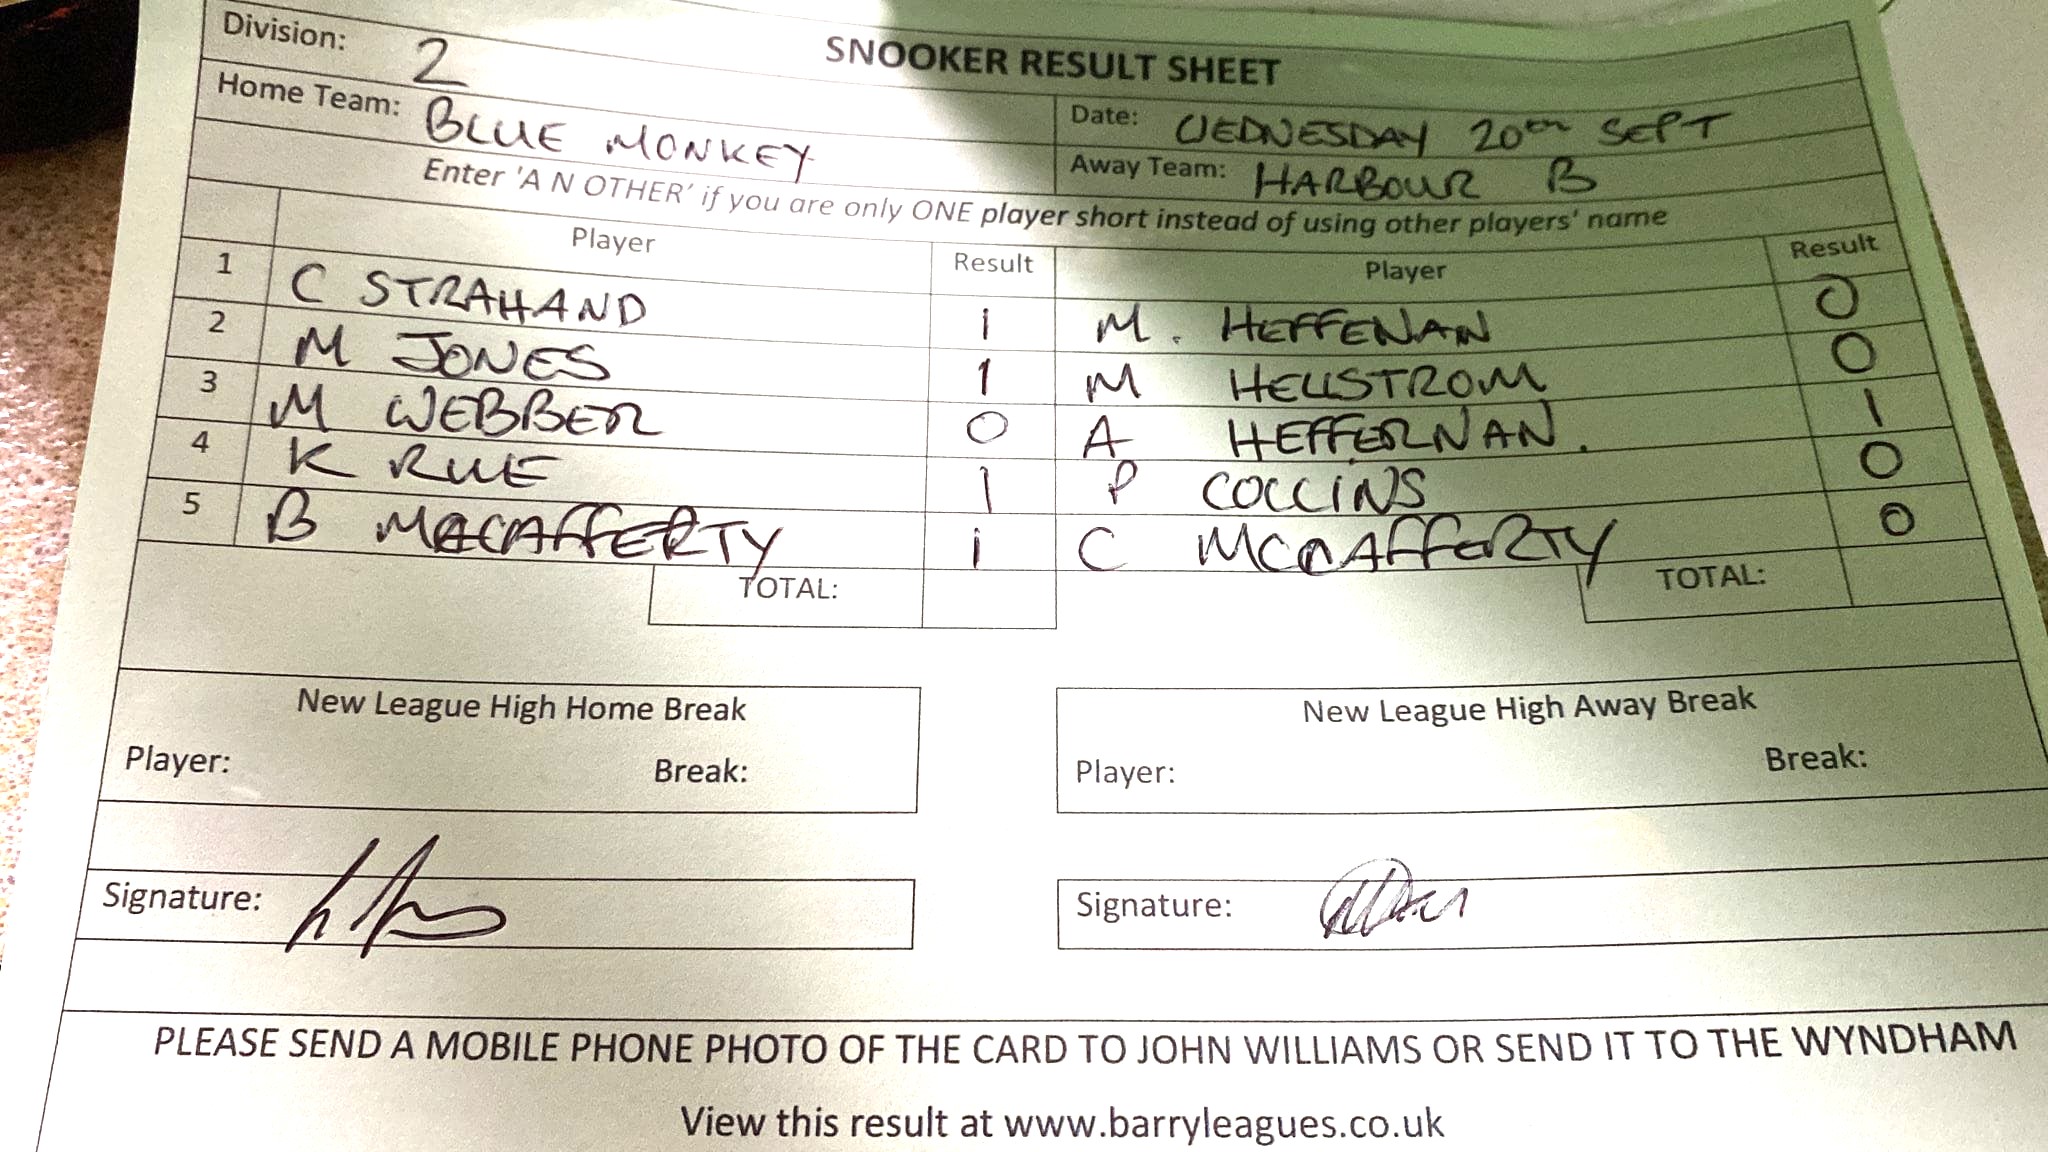 SNOOKER RESULT SHEET
Division: 2
Home Team: BLUE MONKEY
Date: WEDNESDAY 20TH SEPT
Away Team: HARBOUR B
Enter 'A N OTHER' if you are only ONE player short instead of using other players' name
Player Result Player Result
1 C STRAHAND 1 M. HEFFENAN 0
2 M JONES 1 M HELLSTROM 0
3 M WEBBER 0 A HEFFERNAN. 1
4 K RUE 1 P COLLINS 0
5 B MACAFFERTY 1 C MCAFFERTY 0
TOTAL: TOTAL:
New League High Home Break
Player: Break:
New League High Away Break
Player: Break:
Signature:
Signature:
PLEASE SEND A MOBILE PHONE PHOTO OF THE CARD TO JOHN WILLIAMS OR SEND IT TO THE WYNDHAM
View this result at www.barryleagues.co.uk